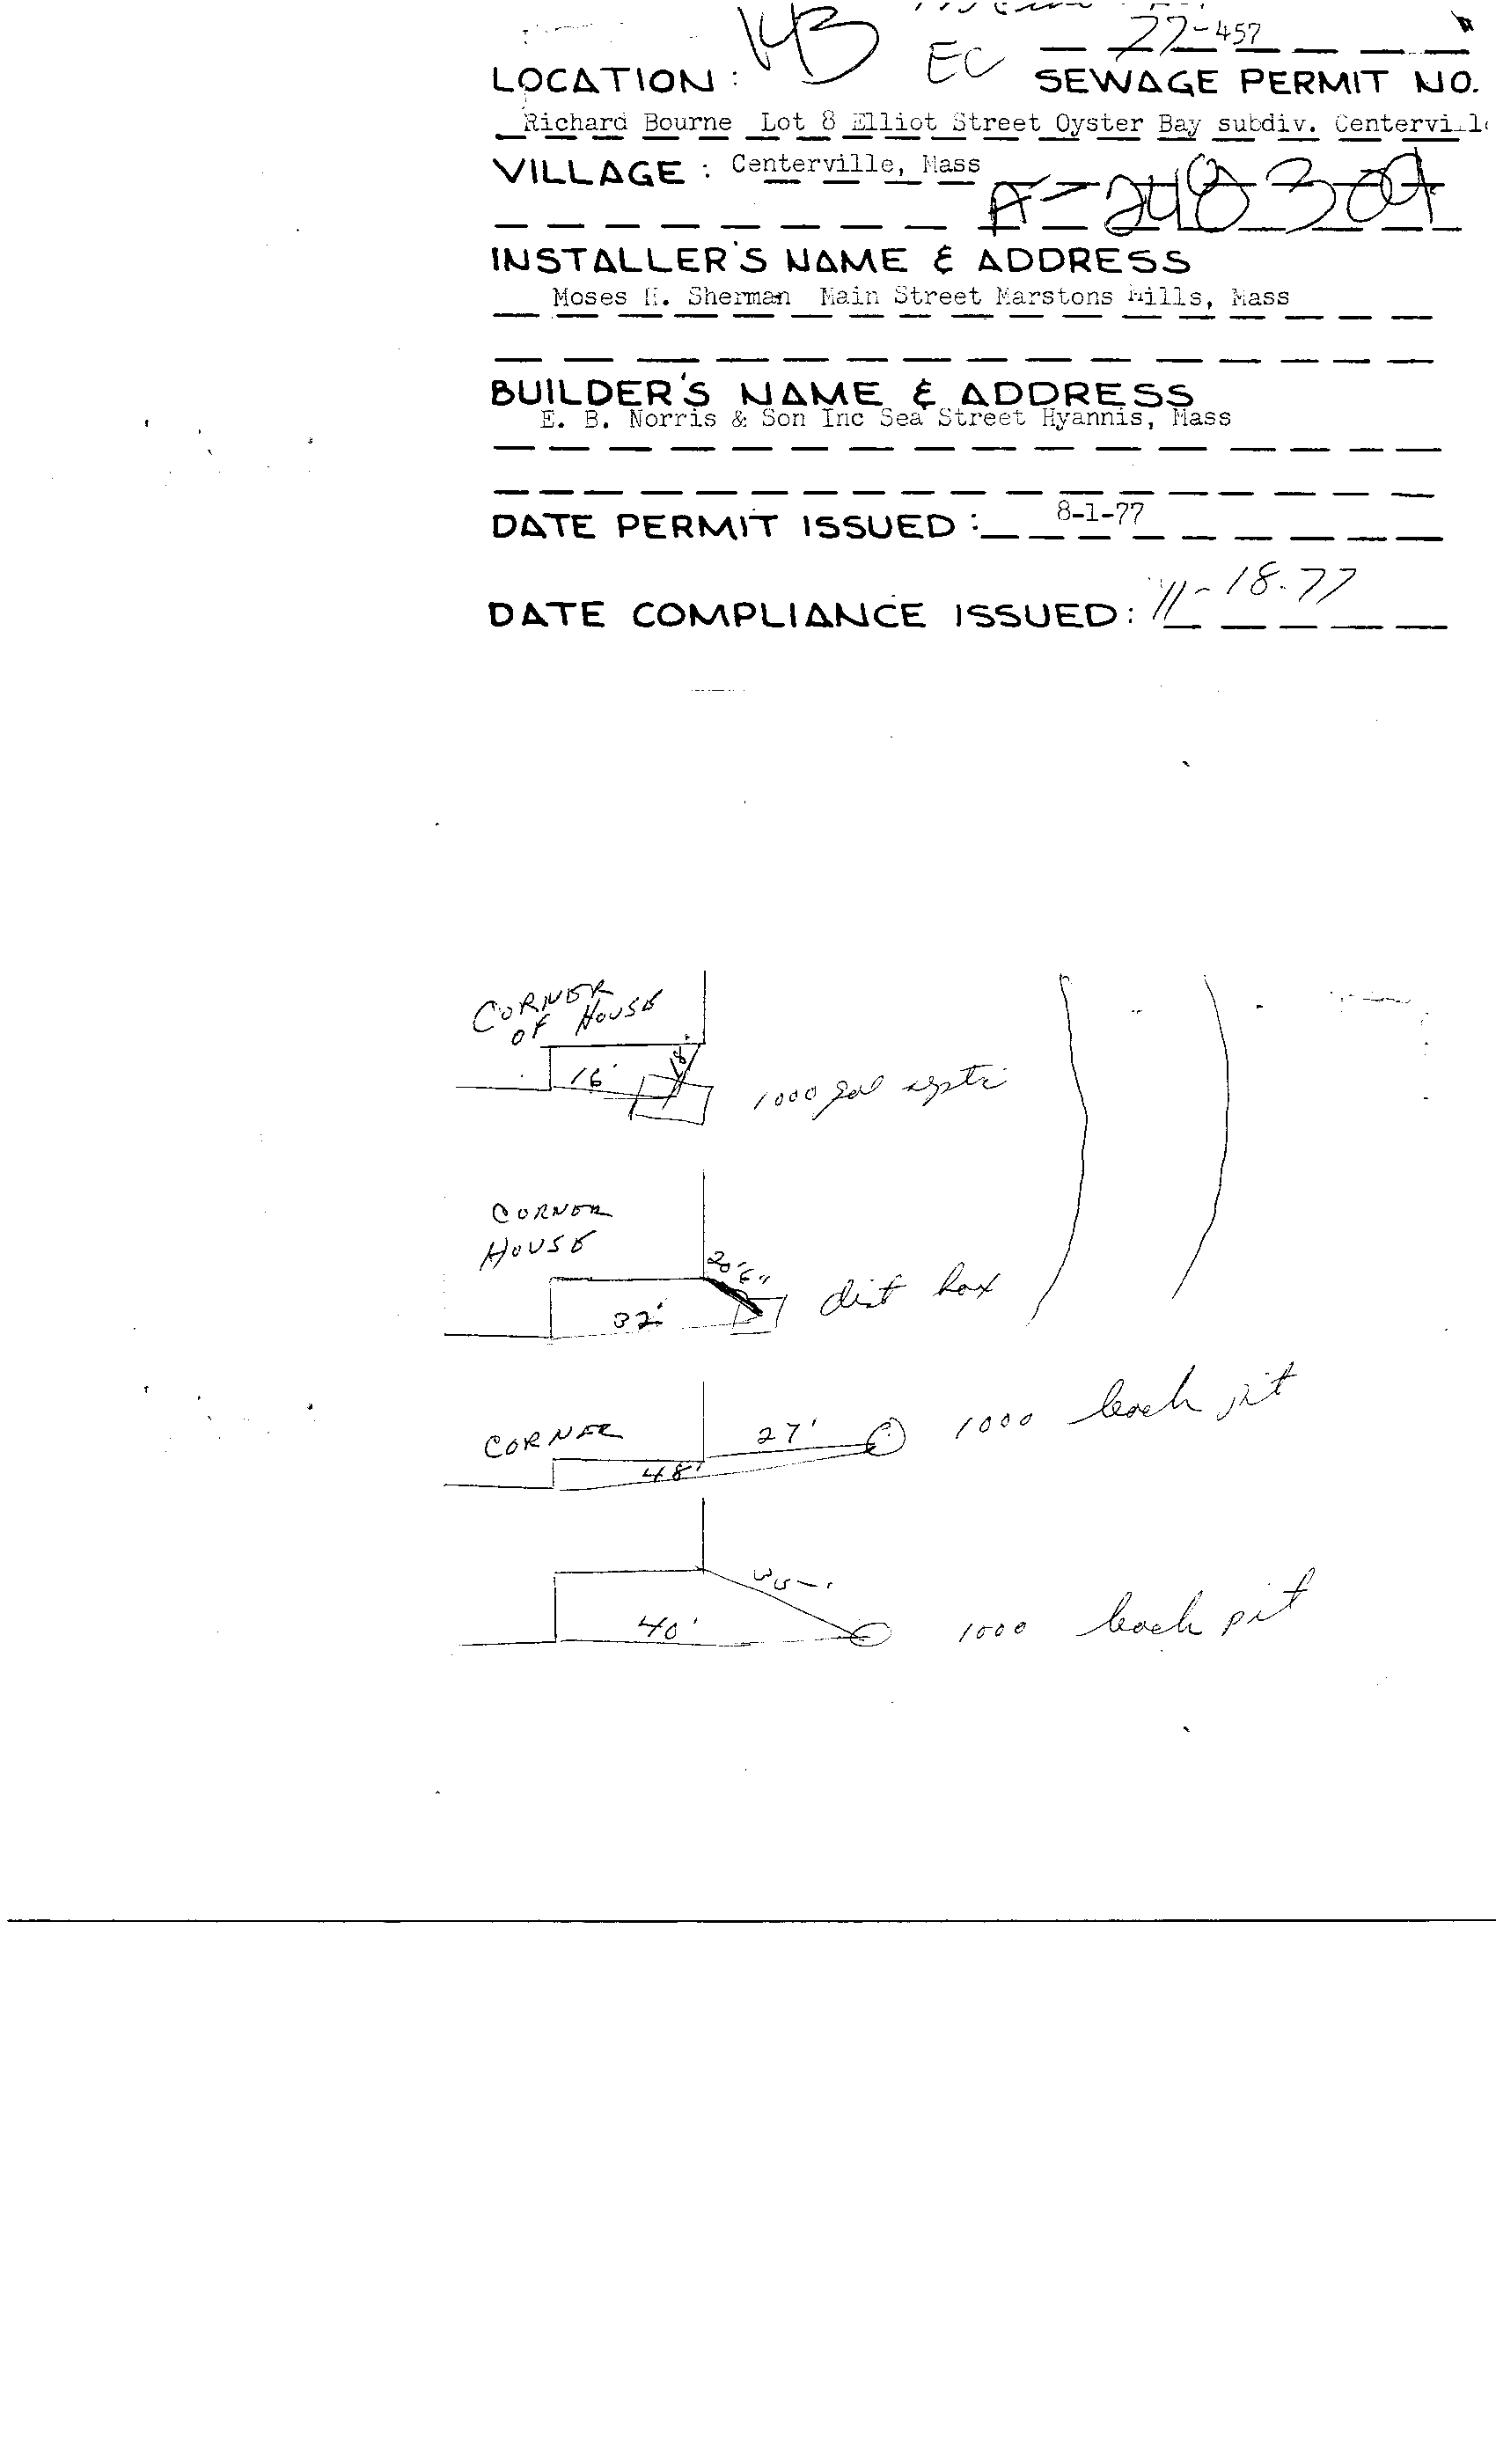 143 EC 77-457
LOCATION : SEWAGE PERMIT NO.
Richard Bourne Lot 8 Elliot Street Oyster Bay subdiv. Centerville
VILLAGE : Centerville, Mass
A=248 309
INSTALLER'S NAME & ADDRESS
Moses H. Sherman Main Street Marstons Mills, Mass
BUILDER'S NAME & ADDRESS
E. B. Norris & Son Inc Sea Street Hyannis, Mass
DATE PERMIT ISSUED : 8-1-77
DATE COMPLIANCE ISSUED: 11-18-77
CORNER
OF HOUSE
16'
1000 gal septi
CORNER
HOUSE
20'6"
32'
dist box
CORNER
27'
48'
1000 leach pit
40'
1000 leach pit